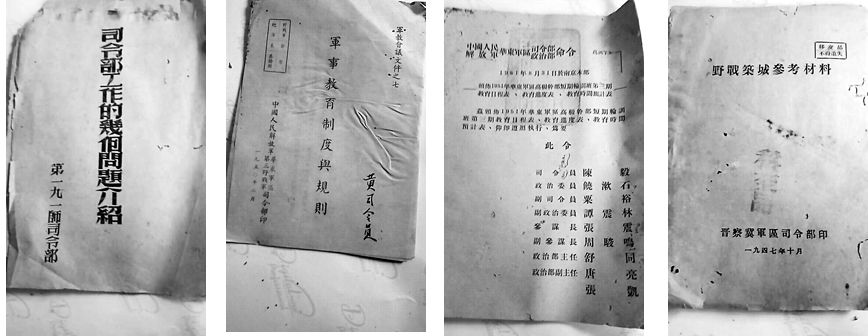 司令部工作的幾個問題介紹
第一九一師司令部
軍教會議文件之七
軍事教育制度與規則
中國人民解放軍華東軍區
第三野戰軍司令部印
黃司令員
中國人民解放軍華東軍區司令部政治部命令
於南京本部
頒佈1951年華東軍區高級幹部短期輪訓班第二期
教育日程表、教育進度表、教育時間預計表
茲頒佈1951年華東軍區高級幹部短期輪訓
班第二期教育日程表、教育進度表、教育時間
預計表、仰即遵照執行、為要
此令
司令員 陳毅
政治委員 饒漱石
副司令員 粟裕
副政治委員 譚震林
參謀長 張震
副參謀長 周駿鳴
政治部主任 舒同
政治部副主任 唐亮
張凱
移交品
不得遺失
野戰築城參考材料
晉察冀軍區司令部印
一九四七年十月